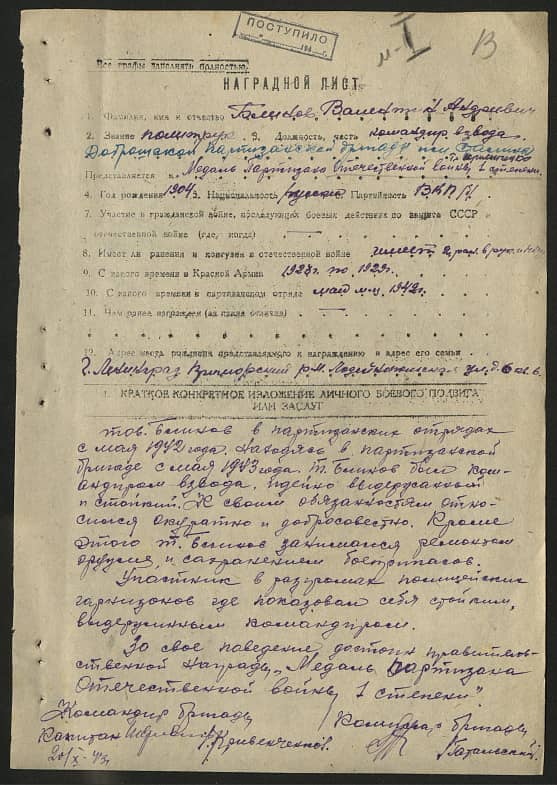 ПОСТУПИЛО
194 г.
м-I
13
Все графы заполнять полностью.
НАГРАДНОЙ ЛИСТ
1. Фамилия, имя и отчество Валент Андреевич
2. Звание политрук 3. Должность, часть командир взвода
партизанской бригады
Представляется к Медаль Партизана Отечественной войны 1 степени.
4. Год рождения 1904 5. Национальность русский Партийность ВКП/б/
7. Участие в гражданской войне, последующих боевых действиях по защите СССР и
отечественной войне (где, когда)
8. Имеет ли ранения и контузии в отечественной войне имеет 2 ран.
9. С какого времени в Красной Армии 1927г. по 1929г.
10. С какого времени в партизанском отряде май м-ц 1942г.
11. Чем ранее награжден (за какие отличия)
12. Адрес места рождения представляемого к награждению и адрес его семьи
г. Ленинград р-н. ул. д. 6 кв. 6.
1. КРАТКОЕ КОНКРЕТНОЕ ИЗЛОЖЕНИЕ ЛИЧНОГО БОЕВОГО ПОДВИГА
ИЛИ ЗАСЛУГ
тов. в партизанских отрядах
с мая 1942 года. Находясь в партизанской
бригаде с мая 1943 года. Т. был ком-
андиром взвода. Идейно выдержанный
и стойкий. К своим обязанностям отно-
сился акуратно и добросовестно. Кроме
этого т. занимался ремонтом
оружия, и сохранением боеприпасов.
Участник в разгромах полицейских
гарнизонов где показовал себя стойким,
выдержанным командиром.
За свое поведение достоин правитель-
ственной награды "Медаль партизана
Отечественной войны 1 степени".
Командир бригады
Комиссар бригады
капитан
20/X-43г